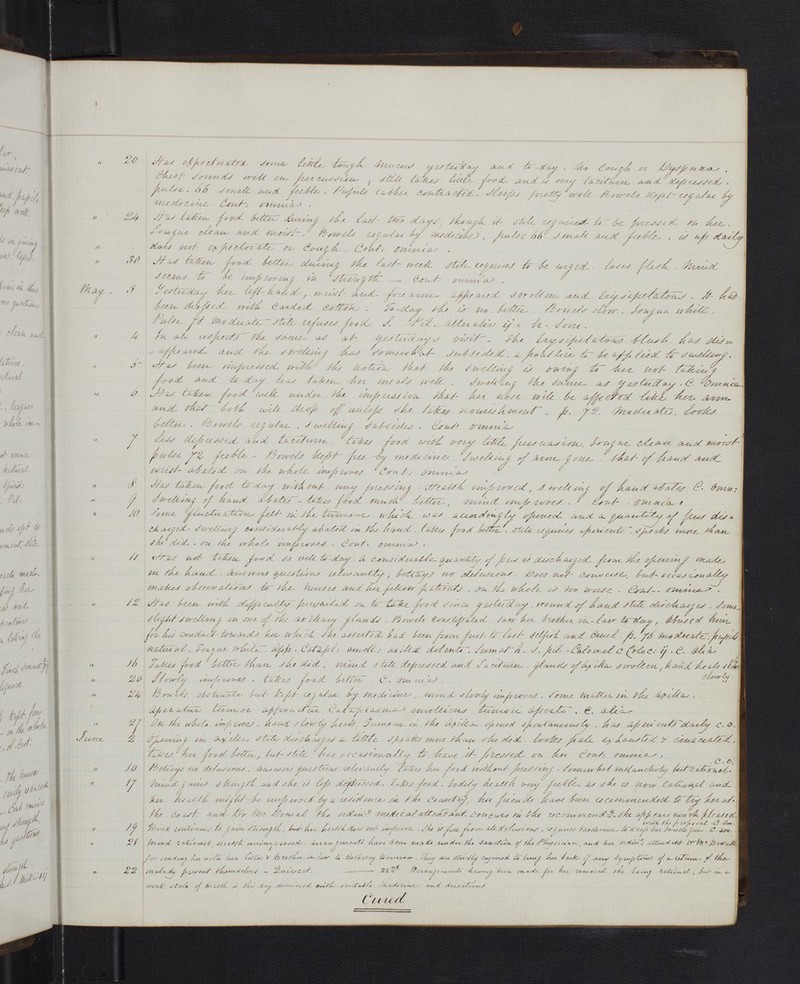 " 20 Has expectorated some little tough mucus yesterday and to-day. No Cough or Dyspnœa.
Chest sounds well on percussion, still takes little food and is very taciturn and depressed.
pulse. 66 small and feeble. Pupils rather contracted. Sleeps pretty well Bowels kept regular by
medicine Cont. omnia.
" 24 Has taken food better during the last two days, though it still required to be pressed on her.
Tongue clean and moist. Bowels regular by medicine. pulse 66 small and feeble. is up daily
" does not expectorate or Cough. Cont. omnia.
" 30 Has taken food better during the last week still requires to be urged. loses flesh. Mind
seems to be improving in strength — Cont omnia.
May - 3 Yesterday her left hand, wrist and fore arm appeared swollen and Erysipelatous. It had
been dressed with Carded Cotton. To-day she is no better Bowels slow. Tongue white.
Pulse 78 moderate still refuses food
" 4 In all respects the same as at yesterdays visit. The Erysipelatous blush has dis-
appeared and the swelling has somewhat subsided, a poultice to be applied to swelling.
" 5 Has been impressed with the notion that the swelling is owing to her not taking
food and to day has taken her meals well. Swelling the same as yesterday. C Omnia.
" 6 Has taken food well under the impression that her nose will be affected like her arm
and that both will drop off unless she takes nourishment. p. 72. Moderate. looks
better. Bowels regular. swelling subsides. Cont. omnia
" 7 Less depressed and taciturn. takes food with very little persuasion. Tongue clean and moist
pulse 72 feeble - Bowels kept free by medicine. Swelling of arm gone. that of hand and
wrist abated on the whole improves Cont. omnia
" 8 Has taken food to day without any pressing. Health improved, swelling of hand abates C. omn:
" 9 Swelling of hand abates - takes food much better, mind improves. Cont omnia.
" 10 Some fluctuation felt in the tumour which was accordingly opened and a quantity of pus dis-
charged. Swelling considerably abated in the hand. takes food better. still requires aperients. speaks more than
she did. on the whole improves. Cont. omnia.
" 11 Has not taken food so well to-day. a considerable quantity of pus is discharged from the opening made
in the hand. answers questions relevantly, betrays no delusions. Does not converse, but occasionally
makes observations to the nurses and her fellow patients. on the whole is no worse. Cont. omnia.
" 12 Has been with difficulty prevailed on to take food since yesterday. wound of hand still discharges. Some
slight swelling in one of the axillary glands. Bowels constipated. saw her brother in-law to-day, abused him
for his conduct towards her which she asserted had been from first to last selfish and cruel p. 76 moderate, pupils
natural. Tongue white. app. Catapl.
" 16 Takes food better than she did. mind still depressed and taciturn. glands of axilla swollen, hand heals slow
slowly.
" 20 Slowly improves. takes food better C. omnia.
" 24 Bowels obstinate but kept regular by medicine, mind slowly improves. Some matter in the axilla.
aperatur tumor Cataplasma emolliens tumori aperto. C. alia
" 27 On the whole improves. hand slowly heals. Tumour in the axilla opened spontaneously. has aperients daily C. O.
June 2 Opening in axilla still discharges a little speaks more than she did. looks pale exhausted & emaciated.
takes her food better, but still has occasionally to have it pressed on her Cont. omnia.
C. O.
" 10 Betrays no delusions. answers questions relevantly. takes her food without pressing. Somewhat melancholy but rational.
" 17 Mind gains strength and she is less depressed. takes food. bodily health very feeble. as she is now rational and
her health might be improved by a residence in the country, her friends have been recommended to try her at
the coast and Dr McDowal the ordiny medical attendant concurs in the recommendn. she appears much pleased
with the proposal C. Om.
" 19 Mind continues to gain strength, but her health does not improve. She is free from all delusions. requires medicine to keep her bowels free. C. om.
" 21 Mind rational, health unimproved. arrangements have been made under the sanction of the Physician and her ordiny attendant Dr McDowal
for sending her with her Sister & Brother in law to They are strictly enjoined to bring her back if any symptoms of a return of the
malady present themselves.
" 22 22nd Arrangements having been made for her removal she being rational, but in a
weak state of health is this day dismissed with suitable medicine and directions
Cured